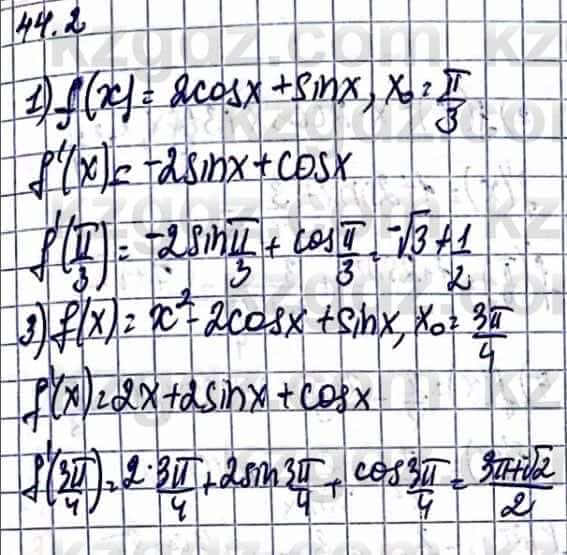 44.2
1) f(x) = 2cosx + sinx, x₀ = π/3
f'(x) = -2sinx + cosx
f'(π/3) = -2sin π/3 + cos π/3 = -√3 + 1/2
3) f(x) = x² - 2cosx + sinx, x₀ = 3π/4
f'(x) = 2x + 2sinx + cosx
f'(3π/4) = 2·3π/4 + 2sin 3π/4 + cos 3π/4 = (3π+√2)/2